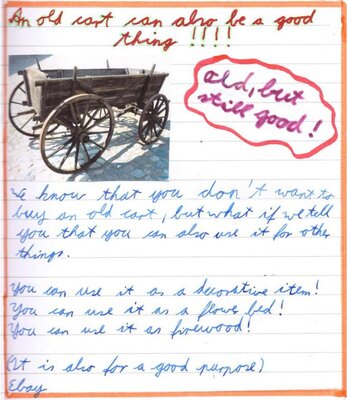 An old cart can also be a good
thing !!!!
old, but
still good!
We know that you don't want to
buy an old cart, but what if we tell
you that you can also use it for other
things.
You can use it as a decorative item!
You can use it as a flower bed!
You can use it as firewood!
(It is also for a good purpose)
Ebay